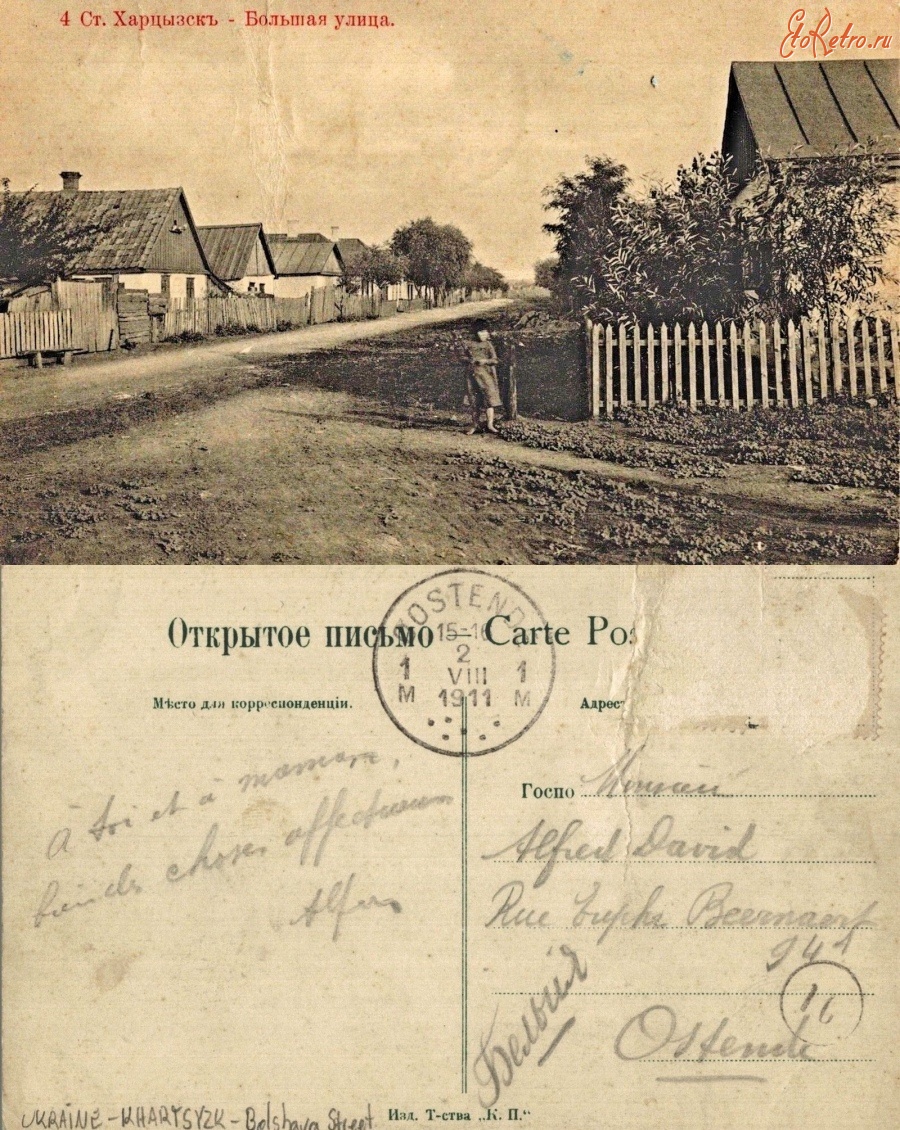 4 Ст. Харцызскъ - Большая улица.
EtoRetro.ru
Открытое письмо — Carte Pos
OSTEND
15-16
2
VIII
1911
1 M
1 M
Мѣсто для корреспонденціи.
Адрес
à toi et à maman,
choses affectueuses
Госпо
Alfred David
Rue Beernaert
Бельгія
Ostende
UKRAINE - KHARTSYZK - Bolshaya Street
Изд. Т-ства „К. П."